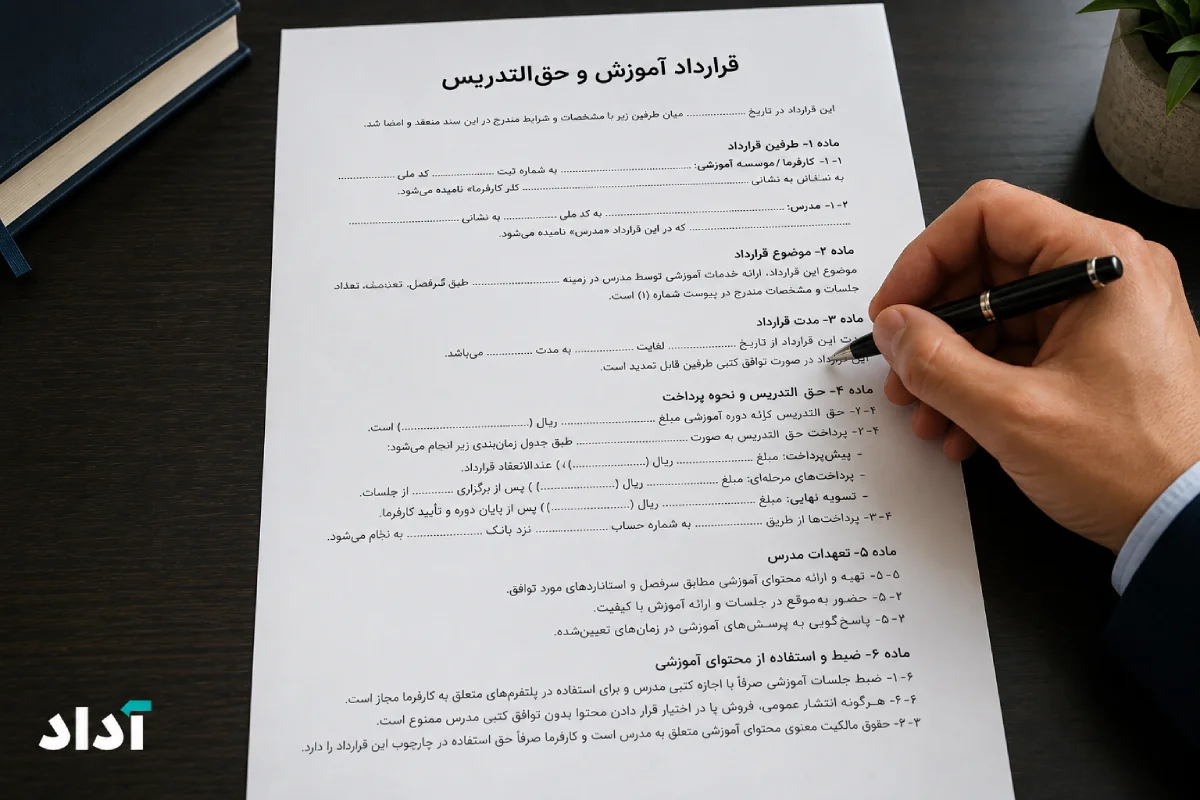 قرارداد آموزش و حق‌التدریس
این قرارداد در تاریخ .................. میان طرفین زیر با مشخصات و شرایط مندرج در این سند منعقد و امضا شد.
ماده ۱- طرفین قرارداد
۱-۱- کارفرما / موسسه آموزشی: .................. به شماره ثبت .................. کد ملی ..................
به نشانی .................. کلر کارفرما» نامیده می‌شود.
۱-۲- مدرس: .................. به کد ملی .................. به نشانی ..................
.................. که در این قرارداد «مدرس» نامیده می‌شود.
ماده ۲- موضوع قرارداد
موضوع این قرارداد، ارائه خدمات آموزشی توسط مدرس در زمینه .................. طبق تعداد
جلسات و مشخصات مندرج در پیوست شماره (۱) است.
ماده ۳- مدت قرارداد
این قرارداد از تاریخ .................. لغایت .................. به مدت .............. می‌باشد.
این قرارداد در صورت توافق کتبی طرفین قابل تمدید است.
ماده ۴- حق التدریس و نحوه پرداخت
۲-۴- حق التدریس دوره آموزشی مبلغ .................. ریال (..................) است.
۲-۴- پرداخت حق التدریس به صورت .................. طبق جدول زمان‌بندی زیر انجام می‌شود:
- پیش‌پرداخت: مبلغ .................. ریال (..................) عندالانعقاد قرارداد.
- پرداخت‌های مرحله‌ای: مبلغ .................. ریال (..................) ) پس از برگزاری ............ از جلسات.
- تسویه نهایی: مبلغ .................. ریال (..................)) پس از پایان دوره و تأیید کارفرما.
۳-۴- پرداخت‌ها از طریق .................. به شماره حساب .................. نزد بانک .................. به می‌شود.
ماده ۵- تعهدات مدرس
۵-۵- تهیه و ارائه محتوای آموزشی مطابق سرفصل و استانداردهای مورد توافق.
۵-۲- حضور به‌موقع در جلسات و ارائه آموزش با کیفیت.
۵-۲- پاسخ‌گویی به پرسش‌های آموزشی در زمان‌های تعیین‌شده.
ماده ۶- ضبط و استفاده از محتوای آموزشی
۶-۱- ضبط جلسات آموزشی صرفاً با اجازه کتبی مدرس و برای استفاده در پلتفرم‌های متعلق به کارفرما مجاز است.
۶-۶- هرگونه انتشار عمومی، فروش یا در اختیار قرار دادن محتوا بدون توافق کتبی مدرس ممنوع است.
۶-۳- حقوق مالکیت معنوی محتوای آموزشی متعلق به مدرس است و کارفرما صرفاً حق استفاده در چارچوب این قرارداد را دارد.
آداد